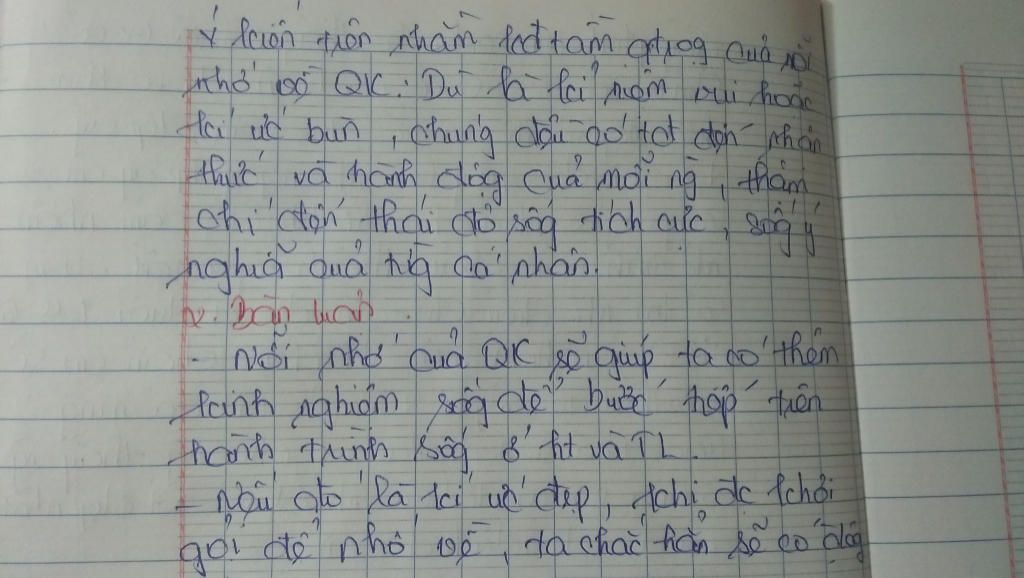 Ý kiến trên nhằm kđ tầm qtrọg của nỗi
nhớ về QK: Dù là kỉ niệm vui hoặc
kí ức buồn, chúng đều có tđ đến nhận
thức và hành độg của mỗi ng, thậm
chí đến thái độ sốg tích cực, sốg ý
nghĩa của từg cá nhân.
Bàn luận.
- Nỗi nhớ của QK sẽ giúp ta có thêm
kinh nghiệm sốg để bước tiếp trên
hành trình sốg ở ht và TL.
- Nếu đó là kí ức đẹp, khi đc khơi
gợi để nhớ về, ta chắc hẳn sẽ có độg